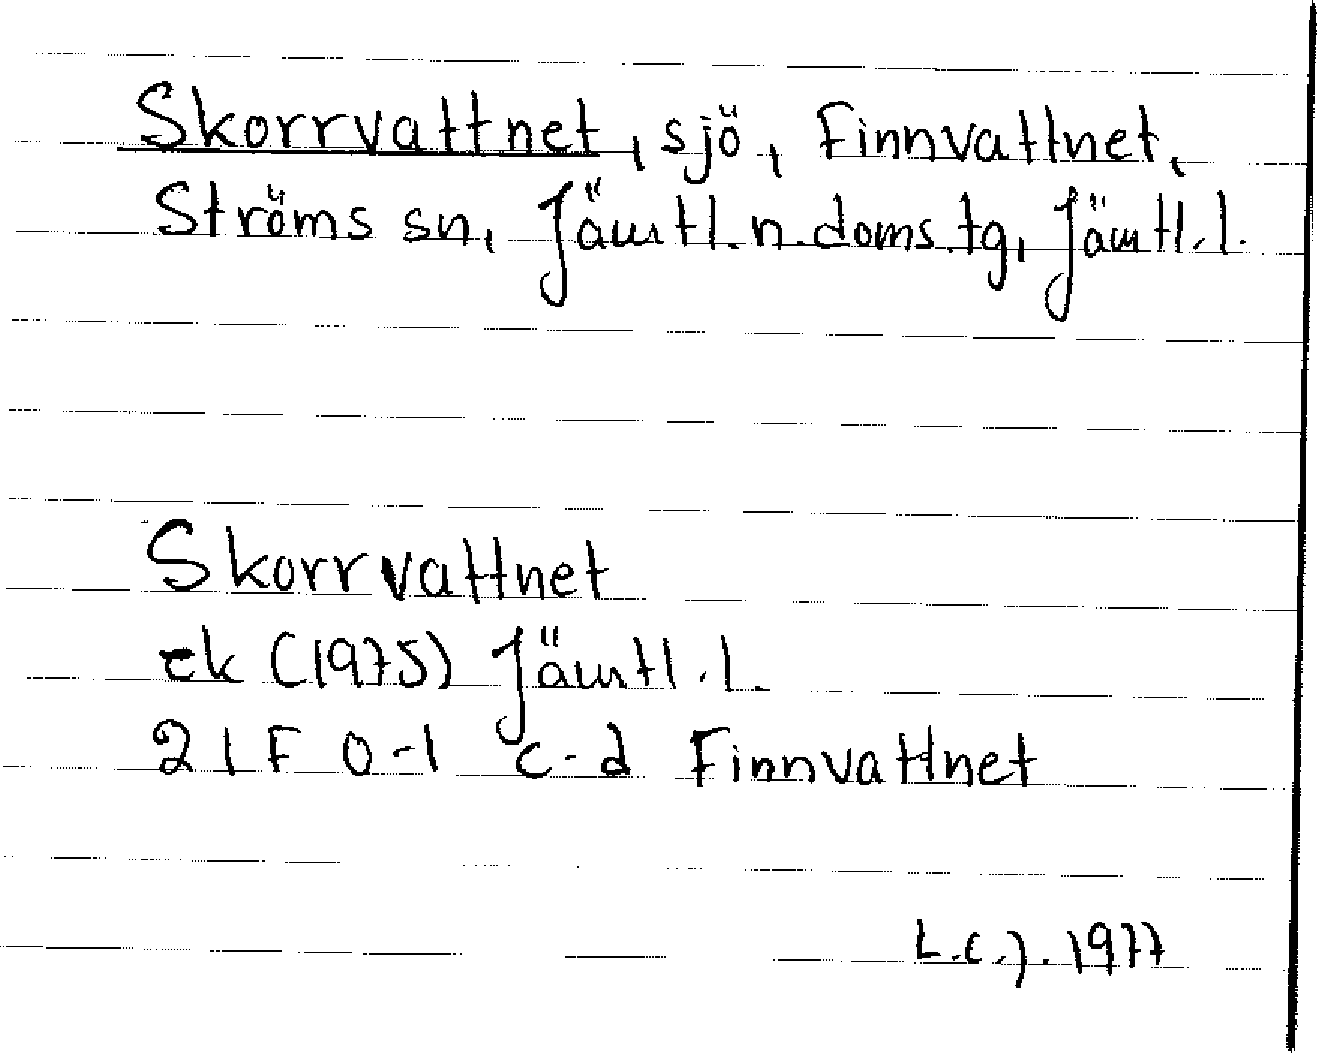 Skorrvattnet, sjö, Finnvattnet,
Ströms sn, Jämtl. n. doms. tg, Jämtl. l.
Skorrvattnet
ek (1975) Jämtl. l.
21F 0-1 c-d Finnvattnet
L.C.J. 1977